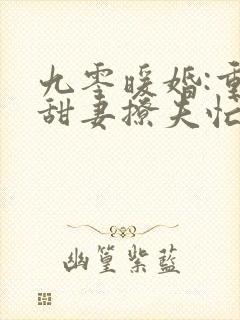 九零暖婚:重
甜妻撩夫忙
幽篁紫蓝